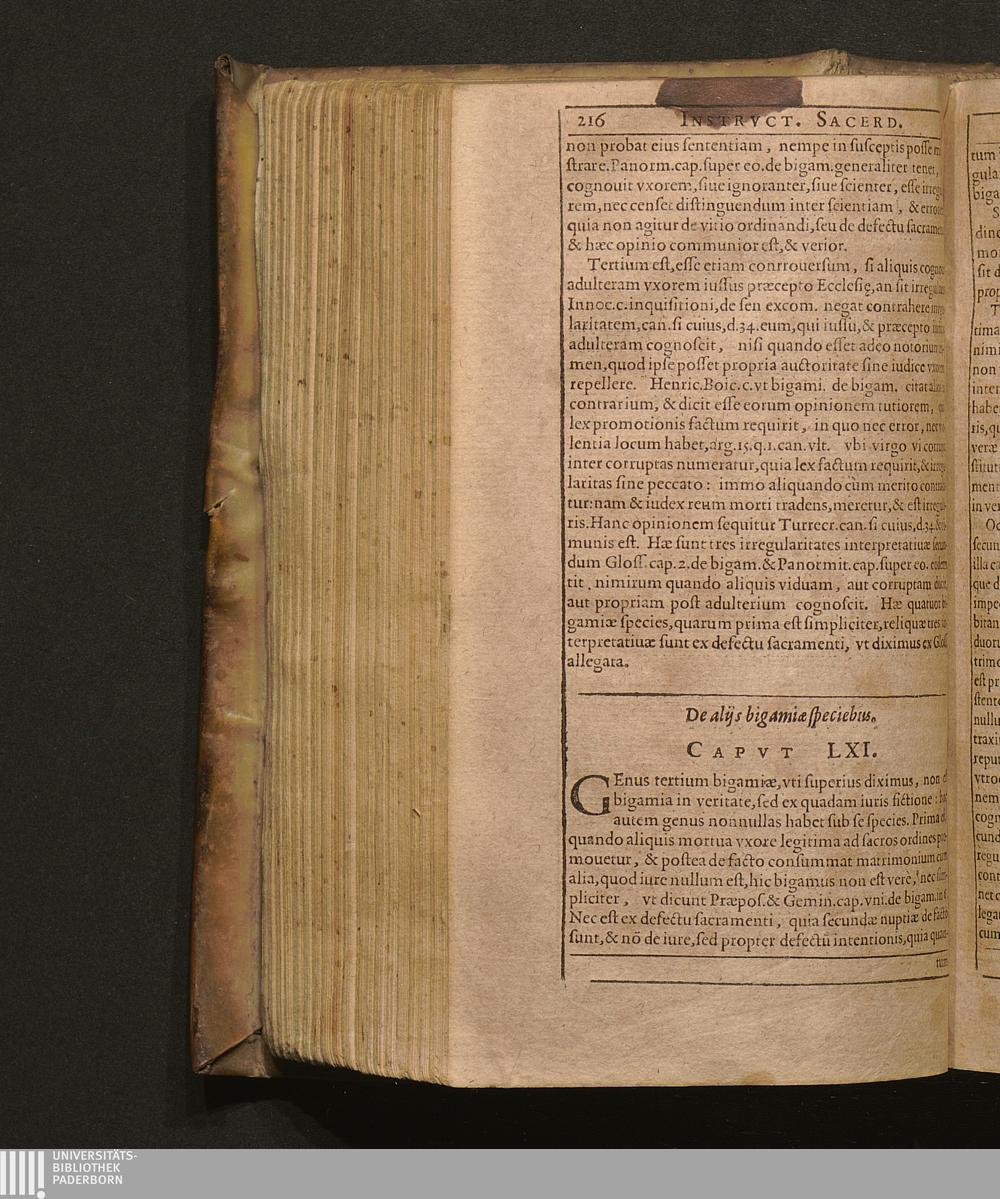 216 INSTRVCT. SACERD.
non probat eius ſententiam, nempe in ſuſceptis poſſe
ſtrare. Panorm. cap. ſuper eo. de bigam. generaliter tenet,
cognouit vxorem, ſiue ignoranter, ſiue ſcienter, eſſe
rem, nec cenſet diſtinguendum inter ſcientiam, &
quia non agitur de vitio ordinandi, ſeu de defectu
& hæc opinio communior eſt, & verior.
Tertium eſt, eſſe etiam controuerſum, ſi aliquis
adulteram vxorem iuſſus præcepto Eccleſię, an ſit
Innoc. c. inquiſitioni, de ſen excom. negat contrahere
laritatem, can. ſi cuius, d. 34. eum, qui iuſſu, & præcepto
adulteram cognoſcit, niſi quando eſſet adeo
men, quod ipſe poſſet propria auctoritate ſine iudice
repellere. Henric. Boic. c. vt bigami. de bigam. citat
contrarium, & dicit eſſe eorum opinionem tutiorem,
lex promotionis factum requirit, in quo nec error,
lentia locum habet, arg. 15. q. 1. can. vlt. vbi virgo vi
inter corruptas numeratur, quia lex factum requirit, &
laritas ſine peccato: immo aliquando cùm merito
tur: nam & iudex reum morti tradens, meretur, & eſt
ris. Hanc opinionem ſequitur Turrecr. can. ſi cuius, d. 34.
munis eſt. Hæ ſunt tres irregularitates interpretatiuæ
dum Gloſſ. cap. 2. de bigam. & Panormit. cap. ſuper eo. eodem
tit. nimirum quando aliquis viduam, aut corruptam
aut propriam poſt adulterium cognoſcit. Hæ quatuor
gamiæ ſpecies, quarum prima eſt ſimpliciter, reliquæ tres
terpretatiuæ ſunt ex defectu ſacramenti, vt diximus ex
allegata.
De alijs bigamiæ ſpeciebus.
CAPVT LXI.
GEnus tertium bigamiæ, vti ſuperius diximus, non
bigamia in veritate, ſed ex quadam iuris fictione:
autem genus nonnullas habet ſub ſe ſpecies. Prima
quando aliquis mortua vxore legitima ad ſacros ordines
mouetur, & poſtea de facto conſummat matrimonium cum
alia, quod iure nullum eſt, hic bigamus non eſt verè, nec
pliciter, vt dicunt Præpoſ. & Gemin. cap. vni. de bigam.
Nec eſt ex defectu ſacramenti, quia ſecundæ nuptiæ de facto
ſunt, & nō de iure, ſed propter defectū intentionis, quia quan-
tum
UNIVERSITÄTS-
BIBLIOTHEK
PADERBORN